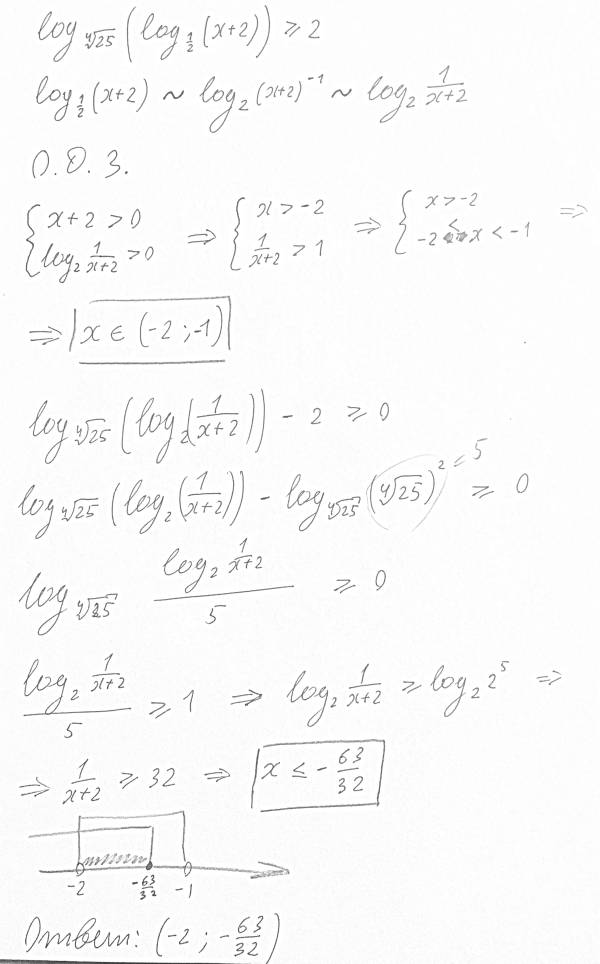 log_{∜25}(log_{1/2}(x+2)) ≥ 2
log_{1/2}(x+2) ~ log_2(x+2)^{-1} ~ log_2 1/(x+2)
О.О.З.
{ x+2 > 0 ; log_2 1/(x+2) > 0 ⇒ { x > -2 ; 1/(x+2) > 1 ⇒ { x > -2 ; -2 < x < -1 ⇒
⇒ |x ∈ (-2 ; -1)|
log_{∜25}(log_2(1/(x+2))) - 2 ≥ 0
log_{∜25}(log_2(1/(x+2))) - log_{∜25}(∜25)^2 ≥ 0 = 5
log_{∜25} (log_2 1/(x+2))/5 ≥ 0
(log_2 1/(x+2))/5 ≥ 1 ⇒ log_2 1/(x+2) ≥ log_2 2^5 ⇒
⇒ 1/(x+2) ≥ 32 ⇒ x ≤ -63/32
-2 -63/32 -1
Ответ: (-2 ; -63/32)